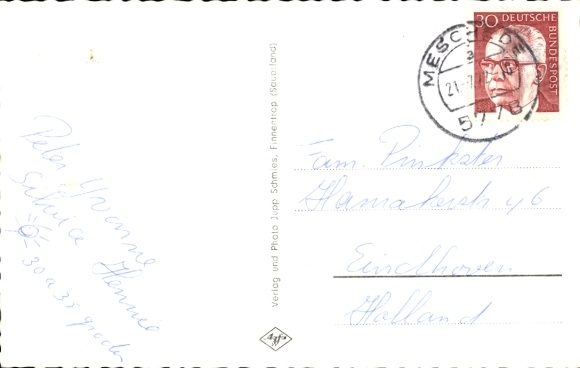 Peter Yvonne
Silvia Hennie
30 a 35 graden
Verlag und Photo Jupp Schmies, Finnentrop (Sauerland)
Agfa
30 DEUTSCHE
BUNDESPOST
MESCHEDE
a
21.-7.72
5778
Fam. Pinkster
Hamakerstr 46
Eindhoven
Holland